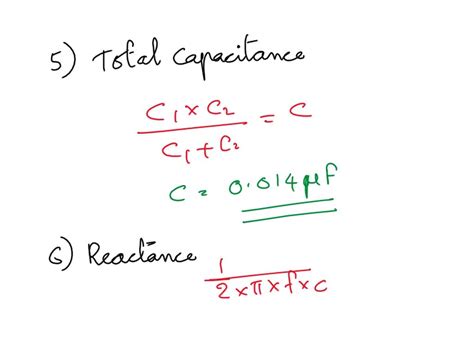 5) Total Capacitance
C₁ × C₂
C₁ + C₂
= C
C = 0.014 µF
6) Reactance
1
2 × π × f × C